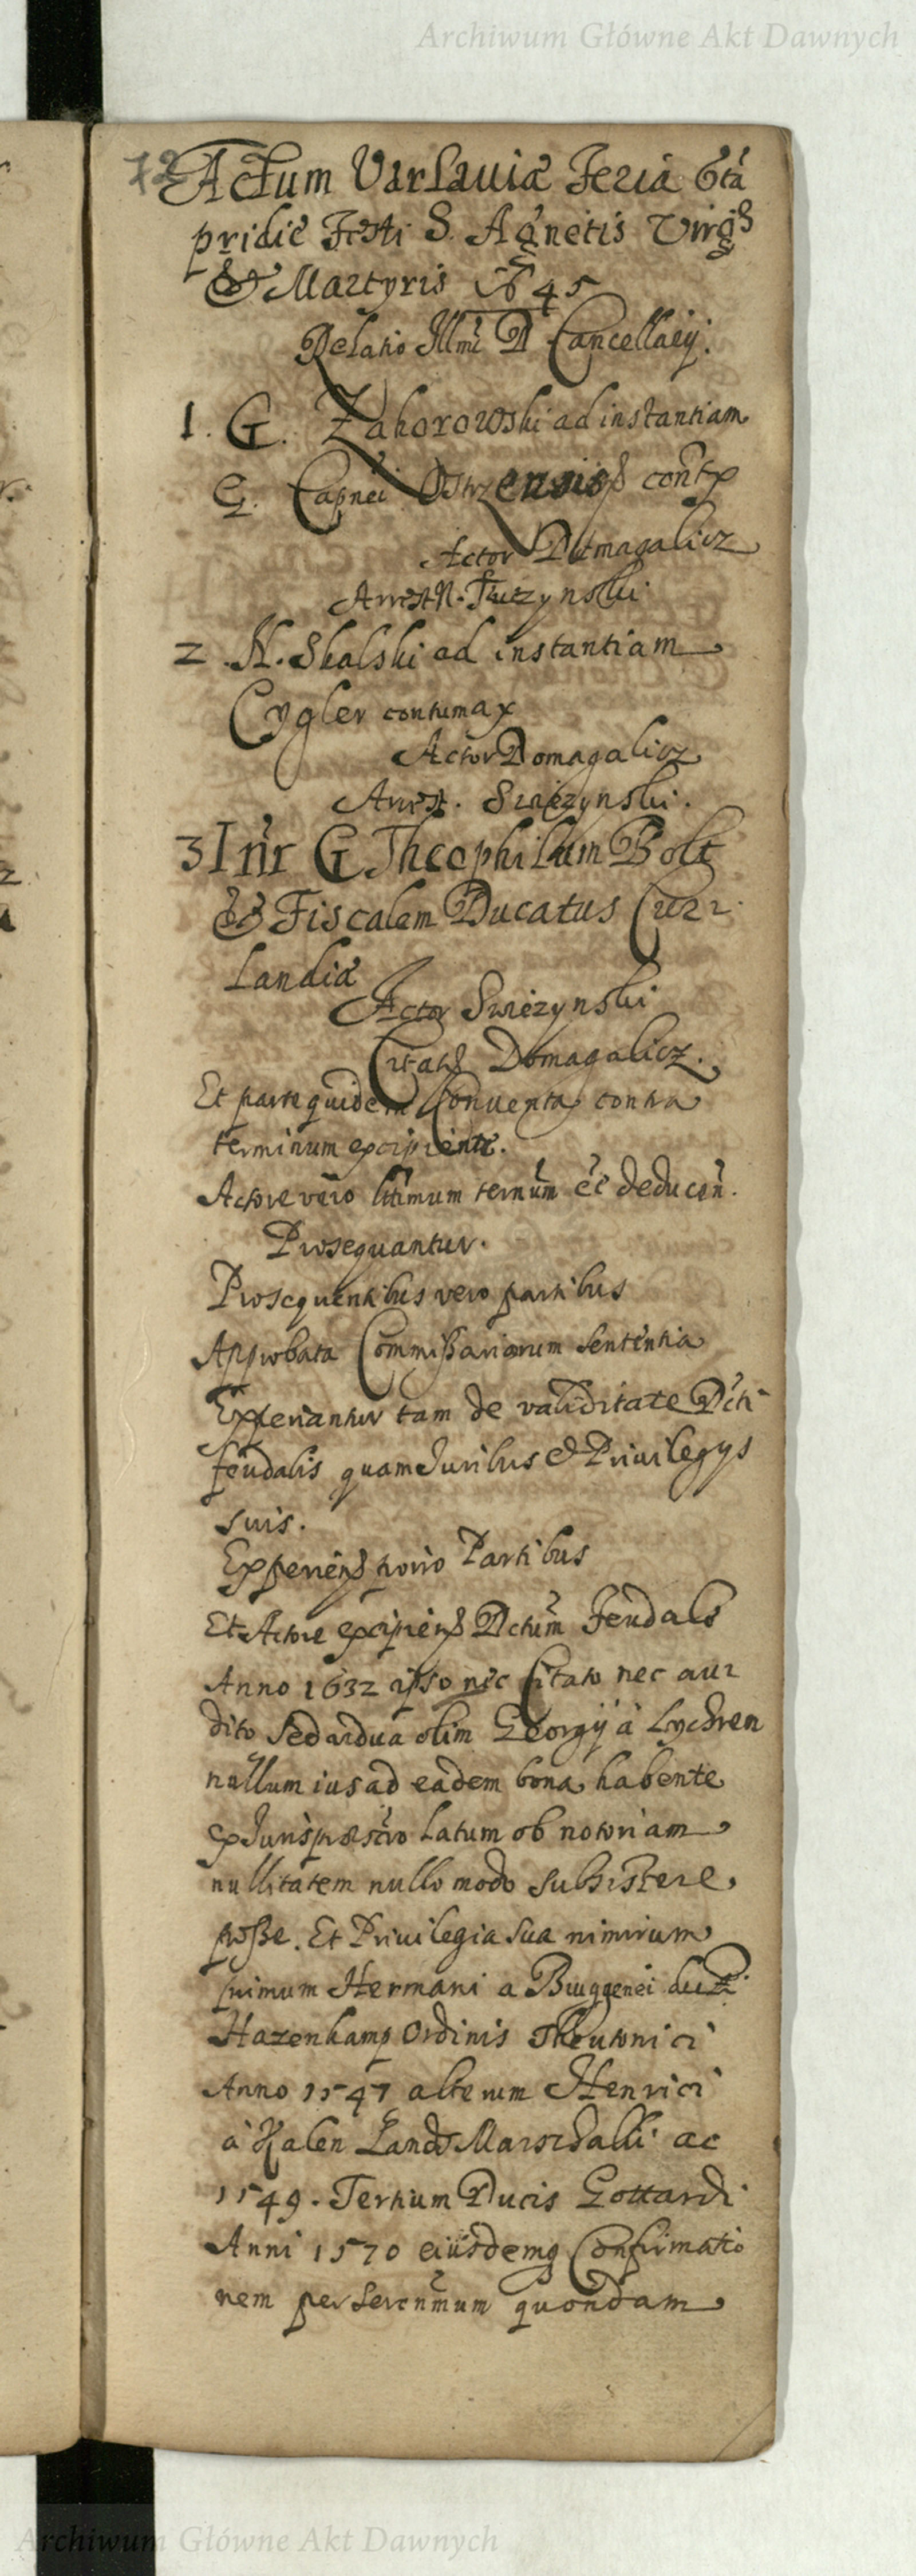 Archiwum Główne Akt Dawnych
72
Actum Varsauiæ Feria 6tá
pridie Festi S. Agnetis Virgs
& Martyris Ao 45
Relatio Illmi D Cancellarij.
1. G. Zahorowski ad instantiam
G. Capnei contx
Actor Domagalicz
Arrest N.
2. N. Skalski ad instantiam
Cygler contumax
Actor Domagalicz
Arrest. Swieżynski.
3 Intr G Theophilum Bolt
& Fiscalem Ducatus Cur
landiæ
Actor Swieżynski
Citats Domagalicz.
Et parte quidem Conventa contra
terminum excipiente.
Actore vero ltimum termum ee deducen.
Prosequantur.
Prosequentibus vero partibus
Approbata Commissariorum sententia
Experiantur tam de validitate Dcti
feudalis quam Juribus & Priuilegys
suis.
Experiens porro Partibus
Et Actore excipiens Dctum Feudale
Anno 1632 ipso nec Citato nec au
dito sed ardua olim Georgij à Lychren
nullum ius ad eadem bona habente
ex latum ob notoriam
nullitatem nullo modo subsistere
posse. Et Priuilegia sua nimirum
primum Hermani a Bruggenei
Hazenkamp Ordinis Theutonici
Anno 1547 alterum Henrici
à Galen Landt Marschalli ac
1549. Tertium Ducis Gottardi
Anni 1570 eiusdemq Confirmatio
nem per Serenmum quondam
Archiwum Główne Akt Dawnych